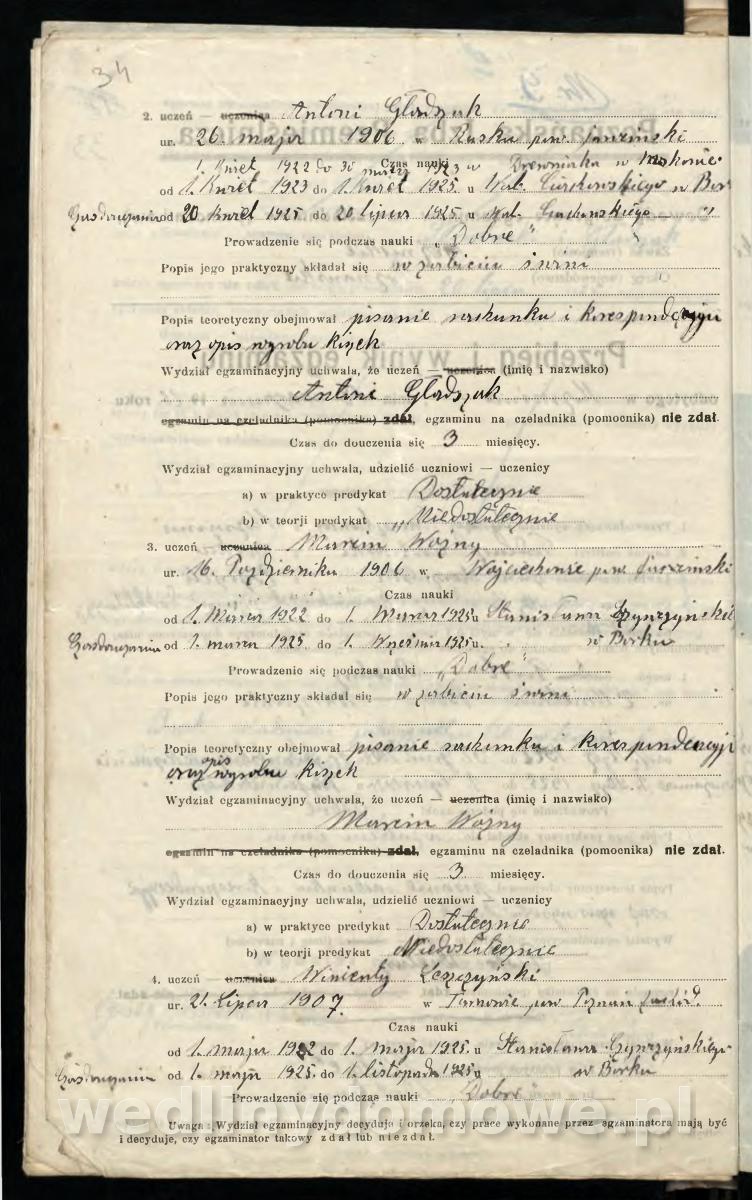 34
2. uczeń — uczenica Antoni Gladszak
ur. 26 maja 1906 w Rusku pow. jarociński
1. Kwiet 1922 do 30 marca 1923 u Drewniaka w
Czas nauki
od 1. Kwiet 1923 do 1. Kwiet 1925 u Wal. w Bor
od 20 Kwiet 1925 do 20 lipca 1925 u Wal.
Prowadzenie się podczas nauki „Dobre"
Popis jego praktyczny składał się w zabiciu świni
Popis teoretyczny obejmował pisanie rachunku i korespondencyji
oraz opis wyrobu kiszek
Wydział egzaminacyjny uchwala, że uczeń — uczenica (imię i nazwisko)
Antoni Gladszak
egzamin na czeladnika (pomocnika) zdał, egzaminu na czeladnika (pomocnika) nie zdał.
Czas do douczenia się 3 miesięcy.
Wydział egzaminacyjny uchwala, udzielić uczniowi — uczenicy
a) w praktyce predykat Dostatecznie
b) w teorji predykat „Niedostatecznie
3. uczeń — uczenica Marcin Woźny
ur. 16. Października 1906 w pow.
Czas nauki
od 1. Marca 1922 do 1. Marca 1925 u Stanisława
od 1. marca 1925 do 1. Września 1925 u. w Borku
Prowadzenie się podczas nauki „Dobre"
Popis jego praktyczny składał się w zabiciu świni
Popis teoretyczny obejmował pisanie rachunku i korespondencyji
opis
oraz wyrobu kiszek
Wydział egzaminacyjny uchwala, że uczeń — uczenica (imię i nazwisko)
Marcin Woźny
egzamin na czeladnika (pomocnika) zdał, egzaminu na czeladnika (pomocnika) nie zdał.
Czas do douczenia się 3 miesięcy.
Wydział egzaminacyjny uchwala, udzielić uczniowi — uczenicy
a) w praktyce predykat Dostatecznie
b) w teorji predykat Niedostatecznie
4. uczeń — uczenica Wincenty Leszczyński
ur. 21. Lipca 1907. w pow. Poznań
Czas nauki
od 1. maja 1922 do 1. maja 1925. u Stanisława
od 1. maja 1925. do 1. listopada 1925 u w Borku
Prowadzenie się podczas nauki Dobre"
wedlinydomowe.pl
Uwaga: Wydział egzaminacyjny decyduje i orzeka, czy prace wykonane przez egzaminatora mają być
i decyduje, czy egzaminator takowy zdał lub niezdał.